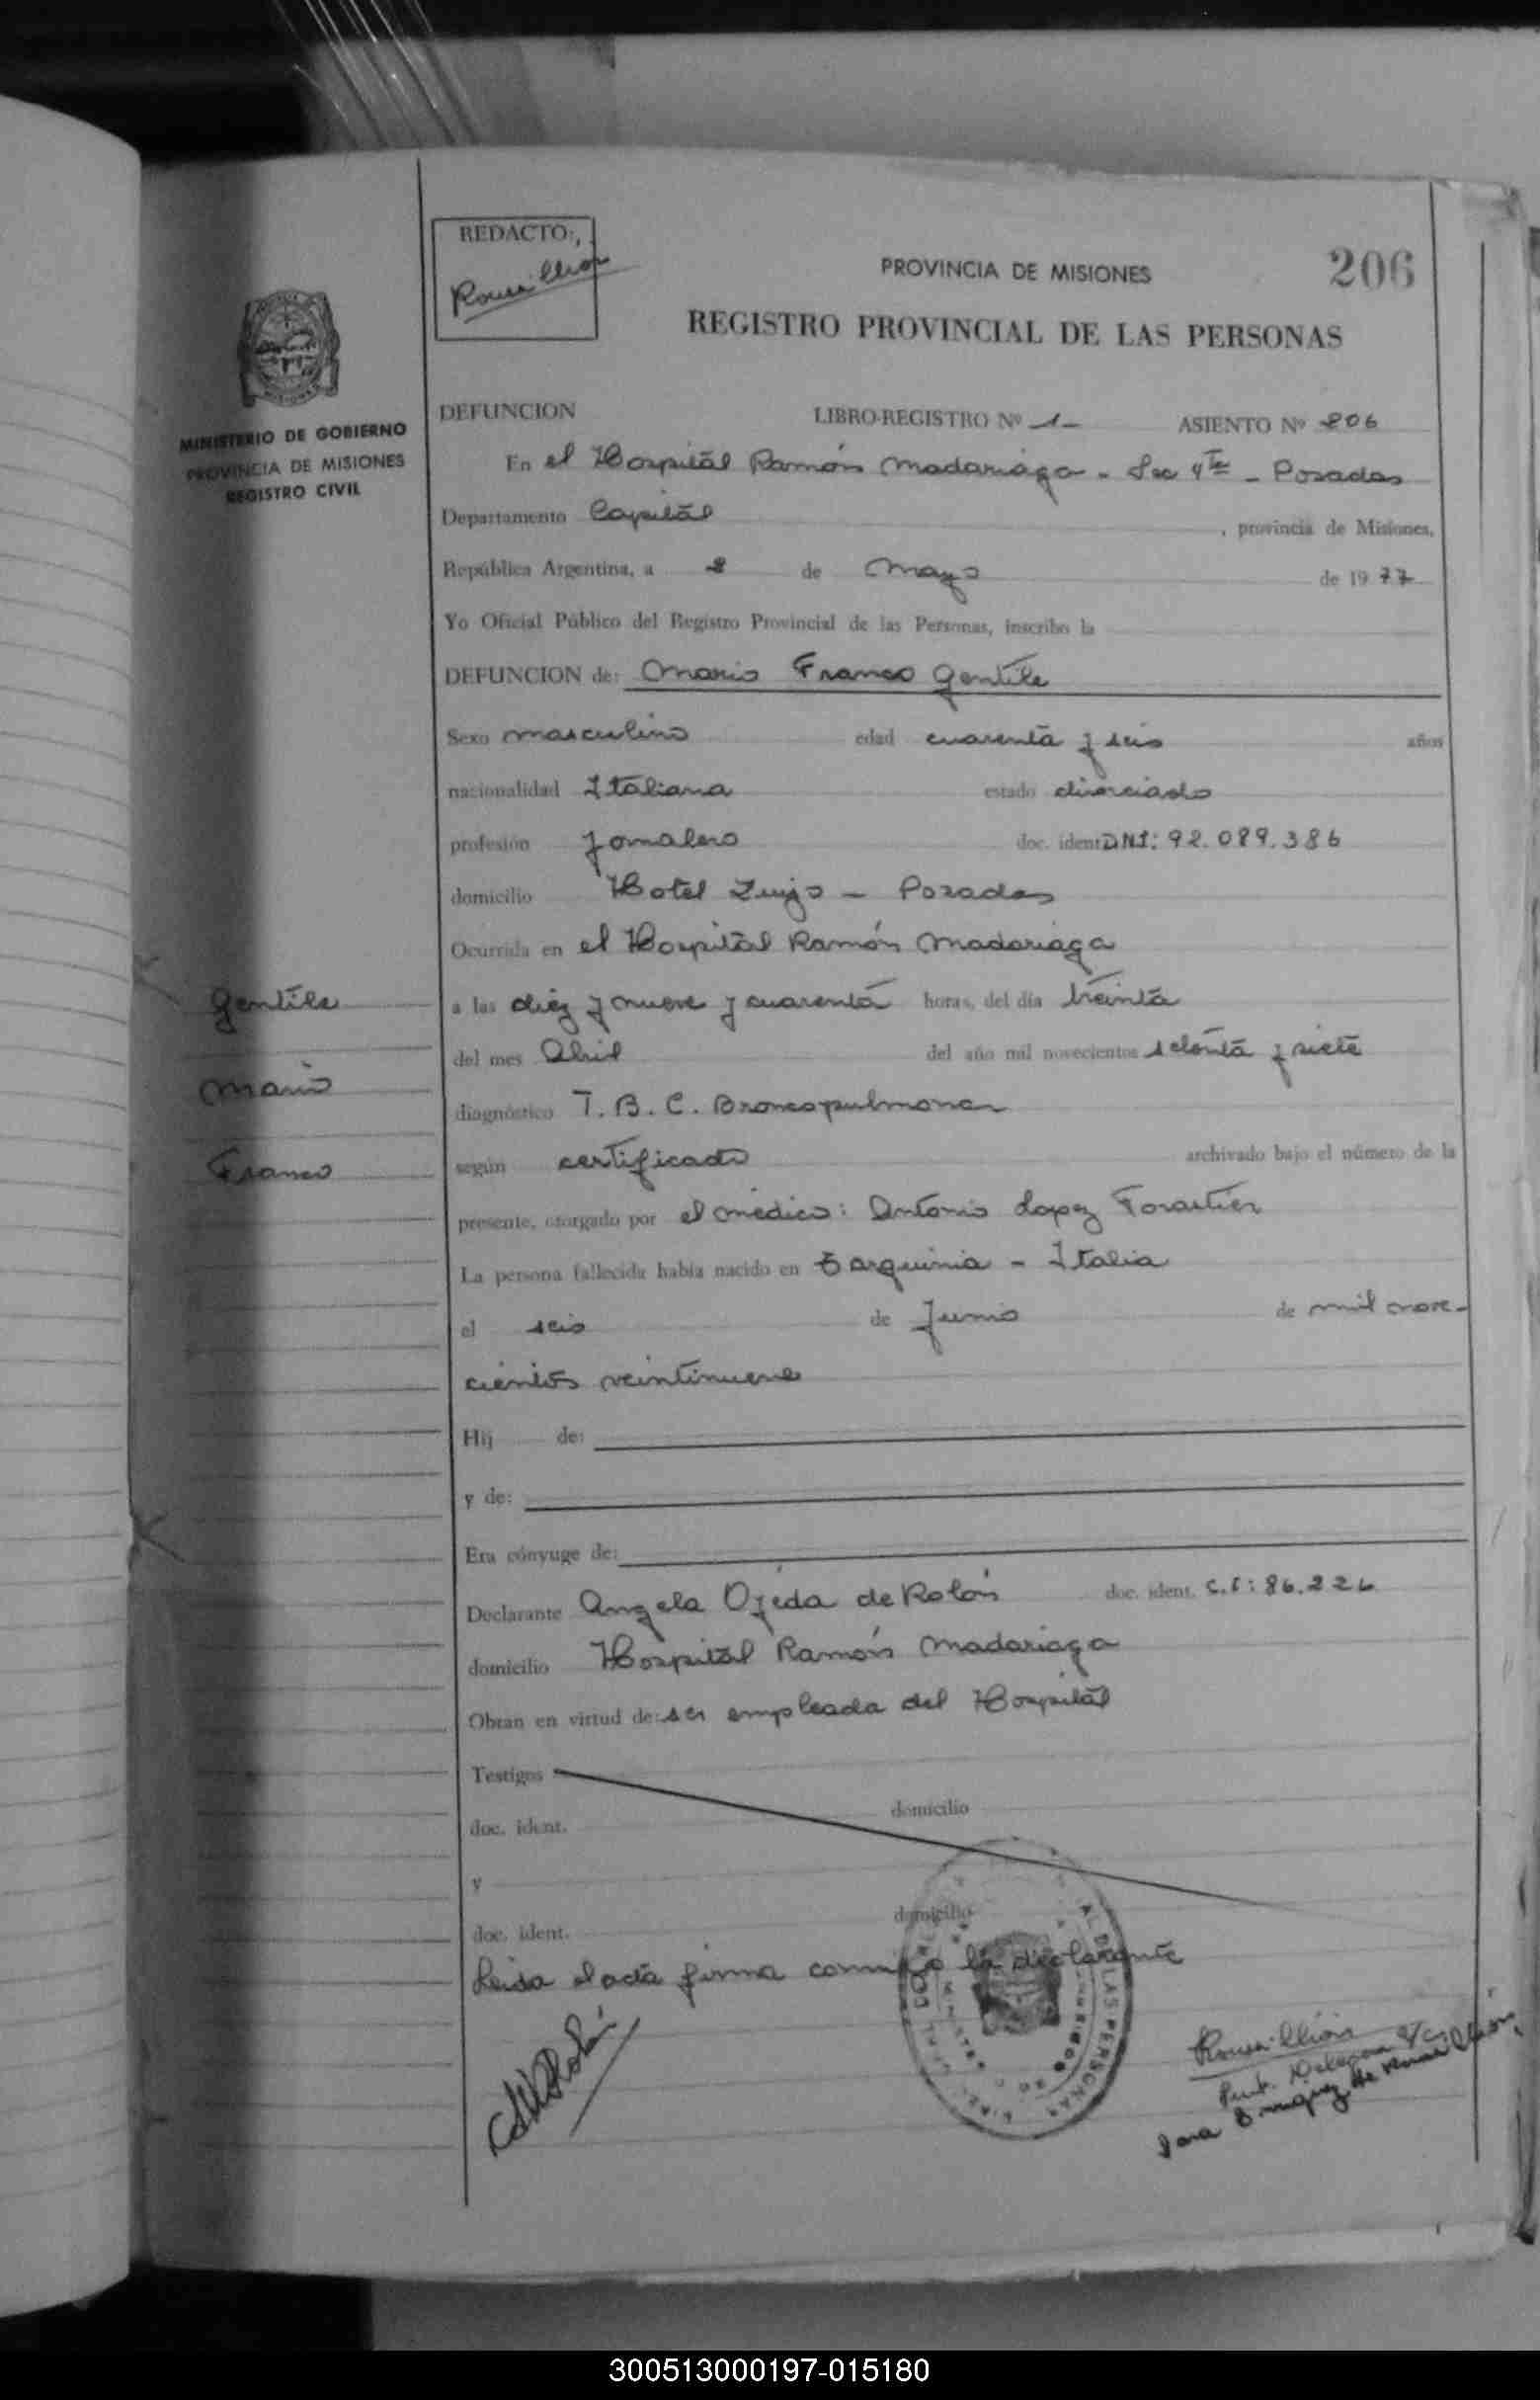 REDACTO:
Rousillion
PROVINCIA DE MISIONES
206
REGISTRO PROVINCIAL DE LAS PERSONAS
MINISTERIO DE GOBIERNO
PROVINCIA DE MISIONES
REGISTRO CIVIL
DEFUNCION LIBRO-REGISTRO Nº 1- ASIENTO Nº 206
En el Hospital Ramón Madariaga - Sec 4ta - Posadas
Departamento Capital , provincia de Misiones,
República Argentina, a 2 de Mayo de 1977
Yo Oficial Público del Registro Provincial de las Personas, inscribo la
DEFUNCION de: Mario Franco Gentile
Sexo masculino edad cuarenta y seis años
nacionalidad Italiana estado divorciado
profesión Jornalero doc. ident. DNI: 92.089.386
domicilio Hotel - Posadas
Ocurrida en el Hospital Ramón Madariaga
a las diez y nueve y cuarenta horas, del día treinta
del mes Abril del año mil novecientos setenta y siete
diagnóstico T.B.C. Broncopulmonar
según certificado archivado bajo el número de la
presente, otorgado por el médico: Antonio Lopez Forastier
La persona fallecida había nacido en Tarquinia - Italia
el seis de Junio de mil nove-
cientos veintinueve
Hij de:
y de:
Era cónyuge de:
Declarante Angela Ojeda de Rolón doc. ident. C.I: 86.226
domicilio Hospital Ramón Madariaga
Obran en virtud de: ser empleada del Hospital
Testigos
doc. ident. domicilio
y
doc. ident. domicilio
Leida el acta firma conmigo la declarante
Gentile
Mario
Franco
Rousillion
300513000197-015180